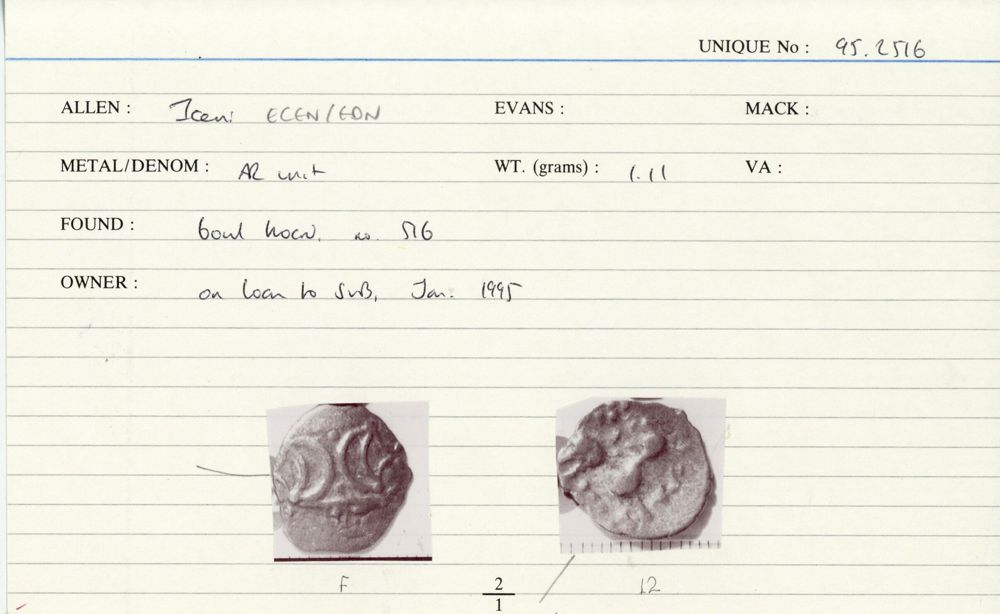 UNIQUE No : 95.2516
ALLEN : Iceni ECEN/EDN EVANS : MACK :
METAL/DENOM : AR unit WT. (grams) : 1.11 VA :
FOUND : bowl hoard, no. 516
OWNER : on loan to SVB, Jan. 1995
F 2/1 12